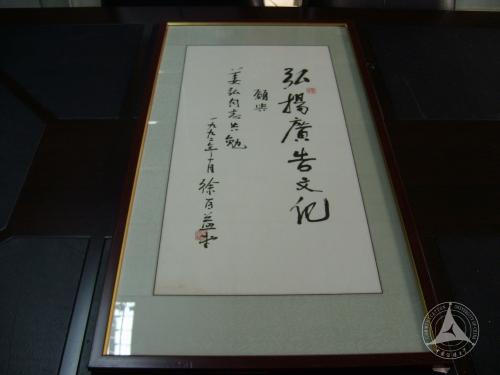 弘揚廣告文化
願與
姜弘同志共勉
一九九二年十月 徐百益